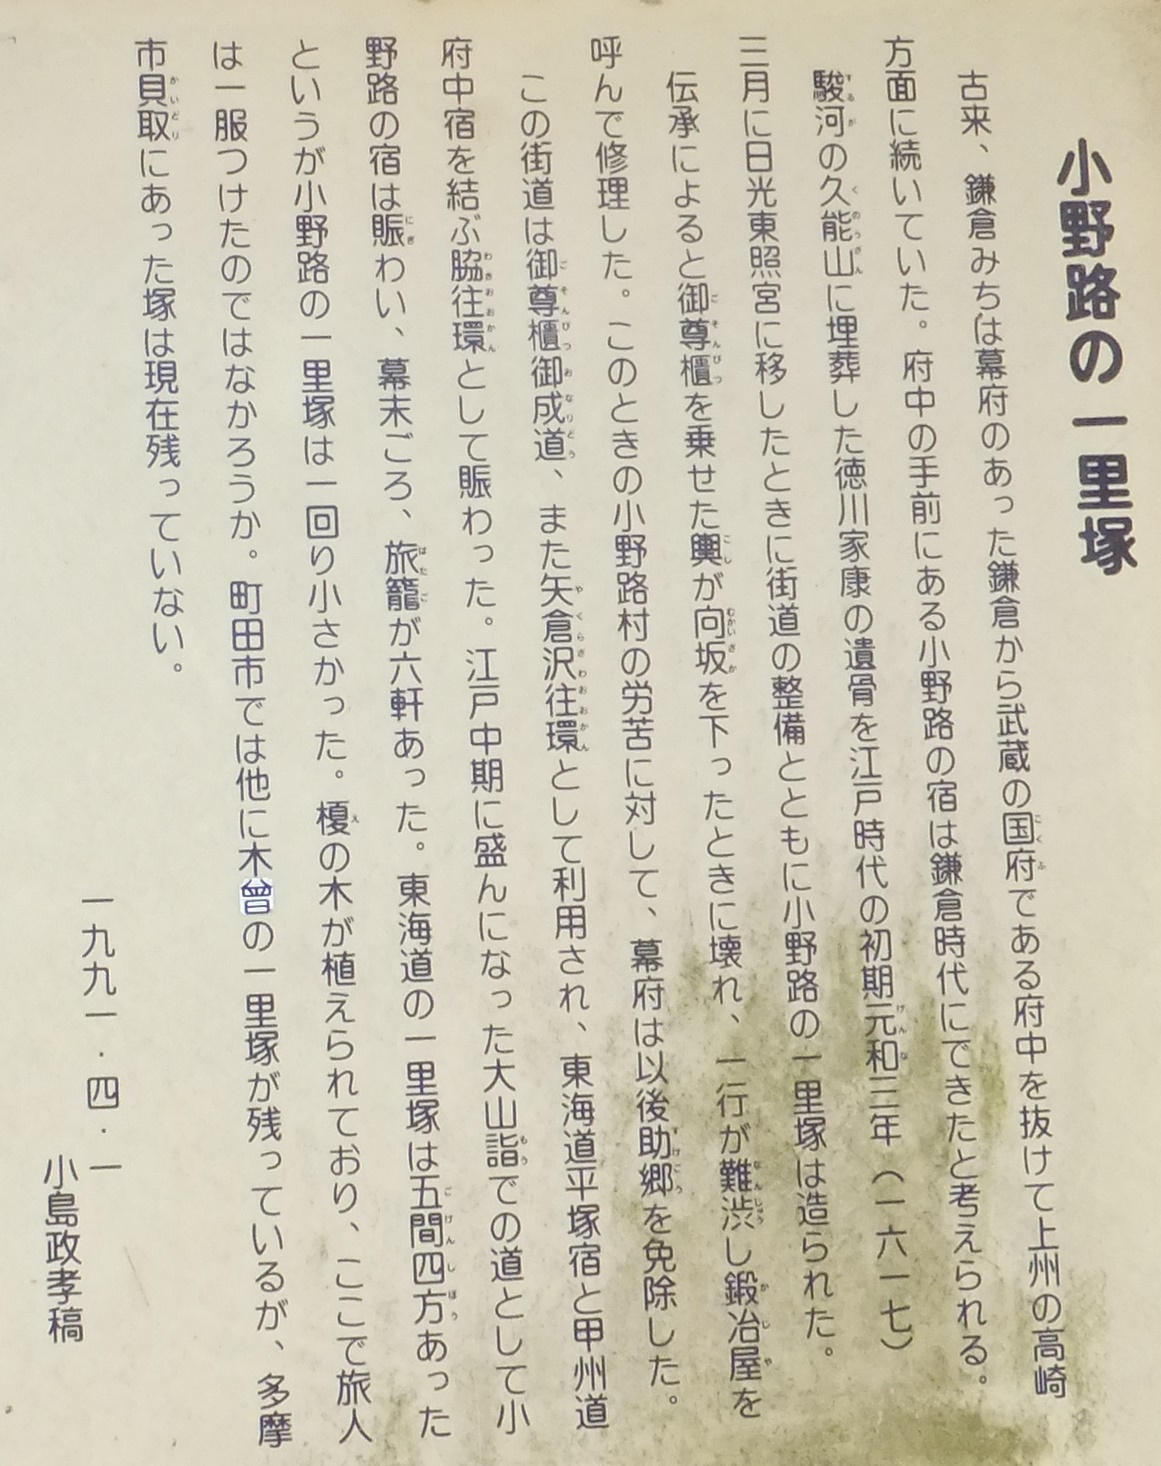 小野路の一里塚
古来、鎌倉みちは幕府のあった鎌倉から武蔵の国府である府中を抜けて上州の高崎
方面に続いていた。府中の手前にある小野路の宿は鎌倉時代にできたと考えられる。
駿河の久能山に埋葬した徳川家康の遺骨を江戸時代の初期元和三年（一六一七）
三月に日光東照宮に移したときに街道の整備とともに小野路の一里塚は造られた。
伝承によると御尊櫃を乗せた輿が向坂を下ったときに壊れ、一行が難渋し鍛冶屋を
呼んで修理した。このときの小野路村の労苦に対して、幕府は以後助郷を免除した。
この街道は御尊櫃御成道、また矢倉沢往環として利用され、東海道平塚宿と甲州道
府中宿を結ぶ脇往環として賑わった。江戸中期に盛んになった大山詣での道として小
野路の宿は賑わい、幕末ごろ、旅籠が六軒あった。東海道の一里塚は五間四方あった
というが小野路の一里塚は一回り小さかった。榎の木が植えられており、ここで旅人
は一服つけたのではなかろうか。町田市では他に木曾の一里塚が残っているが、多摩
市貝取にあった塚は現在残っていない。
一九九一．四．一
小島政孝稿